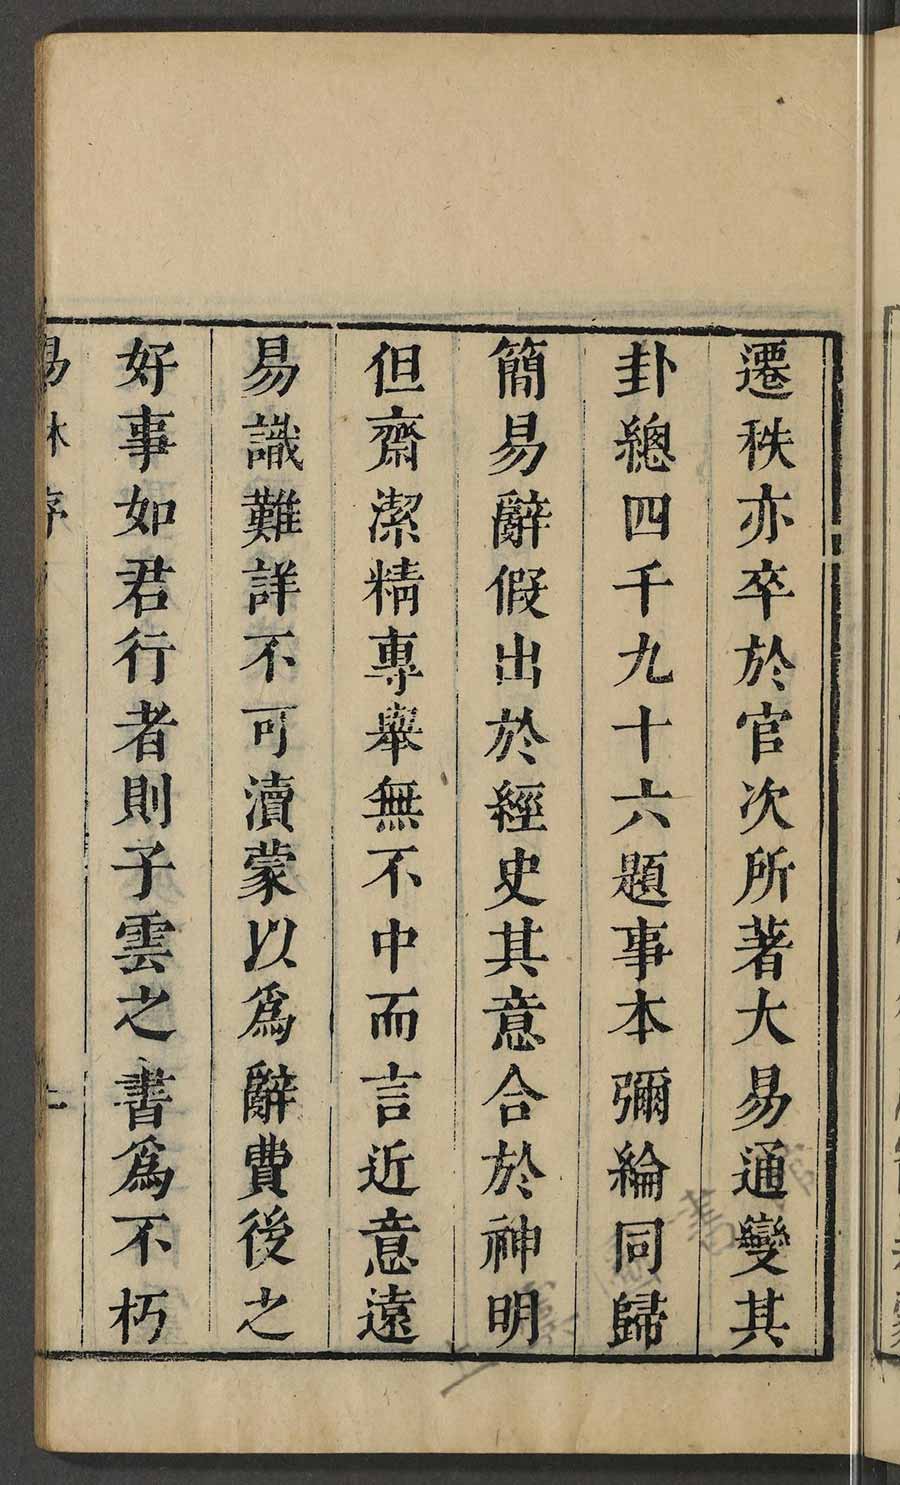 遷秩亦卒於官次所著大易通變其
卦總四千九十六題事本彌綸同歸
簡易辭假出於經史其意合於神明
但齋潔精專舉無不中而言近意遠
易識難詳不可瀆蒙以爲辭費後之
好事如君行者則子雲之書爲不朽
易林序